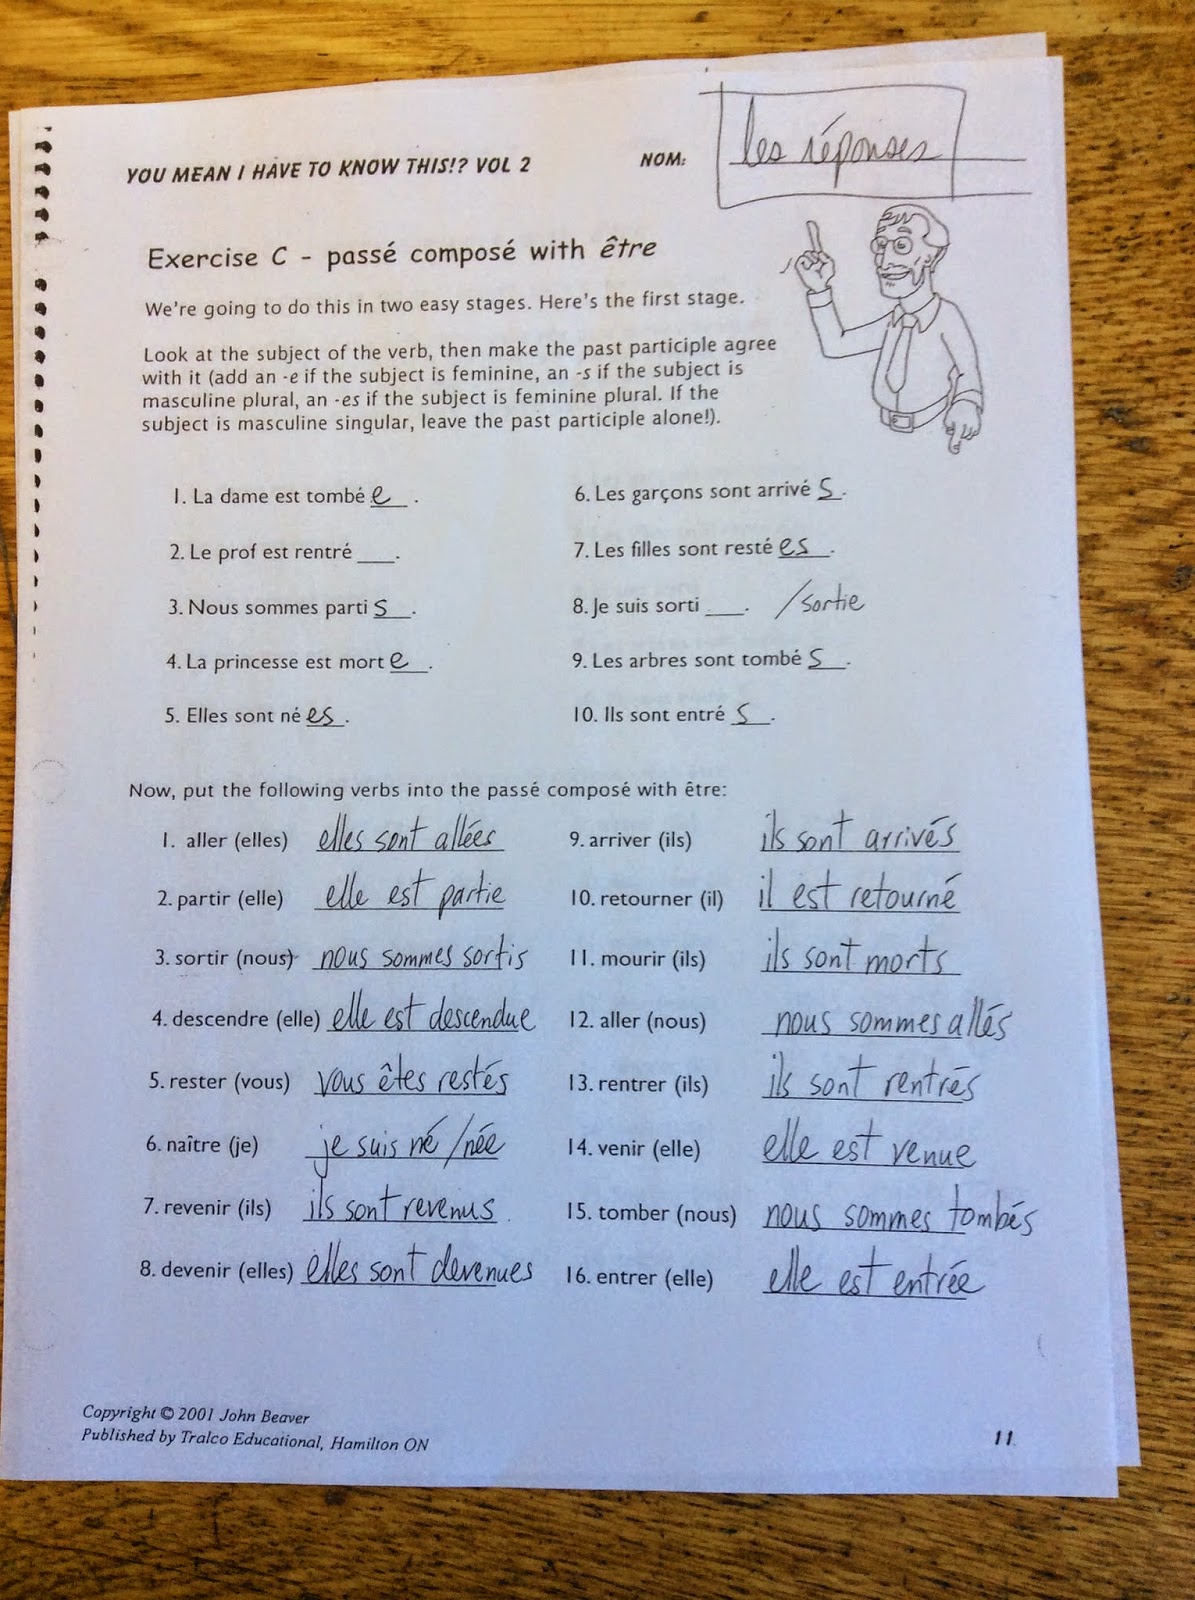 YOU MEAN I HAVE TO KNOW THIS!? VOL 2 NOM: les réponses
Exercise C - passé composé with être
We're going to do this in two easy stages. Here's the first stage.
Look at the subject of the verb, then make the past participle agree
with it (add an -e if the subject is feminine, an -s if the subject is
masculine plural, an -es if the subject is feminine plural. If the
subject is masculine singular, leave the past participle alone!).
1. La dame est tombé e .
2. Le prof est rentré ___.
3. Nous sommes parti s .
4. La princesse est mort e .
5. Elles sont né es .
6. Les garçons sont arrivé s .
7. Les filles sont resté es .
8. Je suis sorti ___. /sortie
9. Les arbres sont tombé s .
10. Ils sont entré s .
Now, put the following verbs into the passé composé with être:
1. aller (elles) elles sont allées
2. partir (elle) elle est partie
3. sortir (nous) nous sommes sortis
4. descendre (elle) elle est descendue
5. rester (vous) vous êtes restés
6. naître (je) je suis né /née
7. revenir (ils) ils sont revenus
8. devenir (elles) elles sont devenues
9. arriver (ils) ils sont arrivés
10. retourner (il) il est retourné
11. mourir (ils) ils sont morts
12. aller (nous) nous sommes allés
13. rentrer (ils) ils sont rentrés
14. venir (elle) elle est venue
15. tomber (nous) nous sommes tombés
16. entrer (elle) elle est entrée
Copyright © 2001 John Beaver
Published by Tralco Educational, Hamilton ON
11